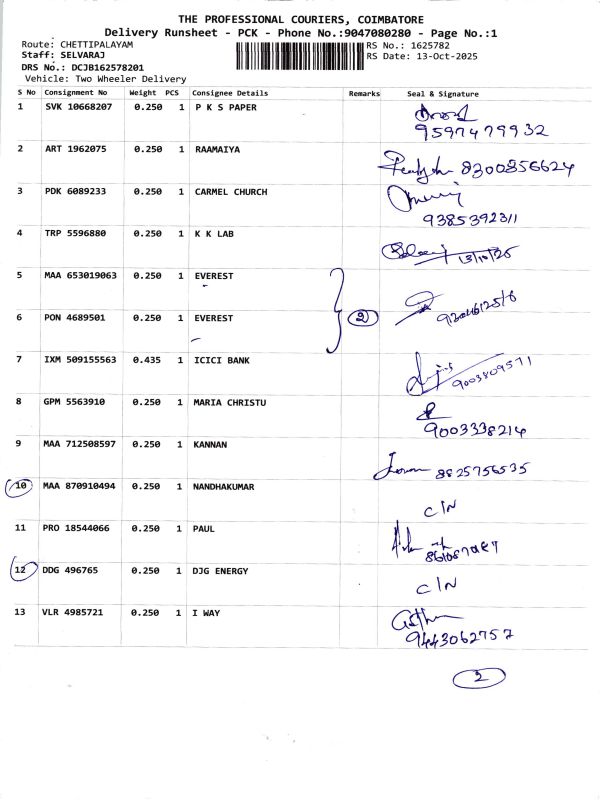 THE PROFESSIONAL COURIERS, COIMBATORE
Delivery Runsheet - PCK - Phone No.:9047080280 - Page No.:1
Route: CHETTIPALAYAM
RS No.: 1625782
Staff: SELVARAJ
RS Date: 13-Oct-2025
DRS No.: DCJB162578201
Vehicle: Two Wheeler Delivery
S No Consignment No Weight PCS Consignee Details Remarks Seal & Signature
1 SVK 10668207 0.250 1 P K S PAPER
9597479932
2 ART 1962075 0.250 1 RAAMAIYA
8300856624
3 PDK 6089233 0.250 1 CARMEL CHURCH
9385392311
4 TRP 5596880 0.250 1 K K LAB
13/10/25
5 MAA 653019063 0.250 1 EVEREST
6 PON 4689501 0.250 1 EVEREST
2
7 IXM 509155563 0.435 1 ICICI BANK
9003809571
8 GPM 5563910 0.250 1 MARIA CHRISTU
9003338214
9 MAA 712508597 0.250 1 KANNAN
8825756535
10 MAA 870910494 0.250 1 NANDHAKUMAR
C/N
11 PRO 18544066 0.250 1 PAUL
12 DDG 496765 0.250 1 DJG ENERGY
C/N
13 VLR 4985721 0.250 1 I WAY
9443062757
2